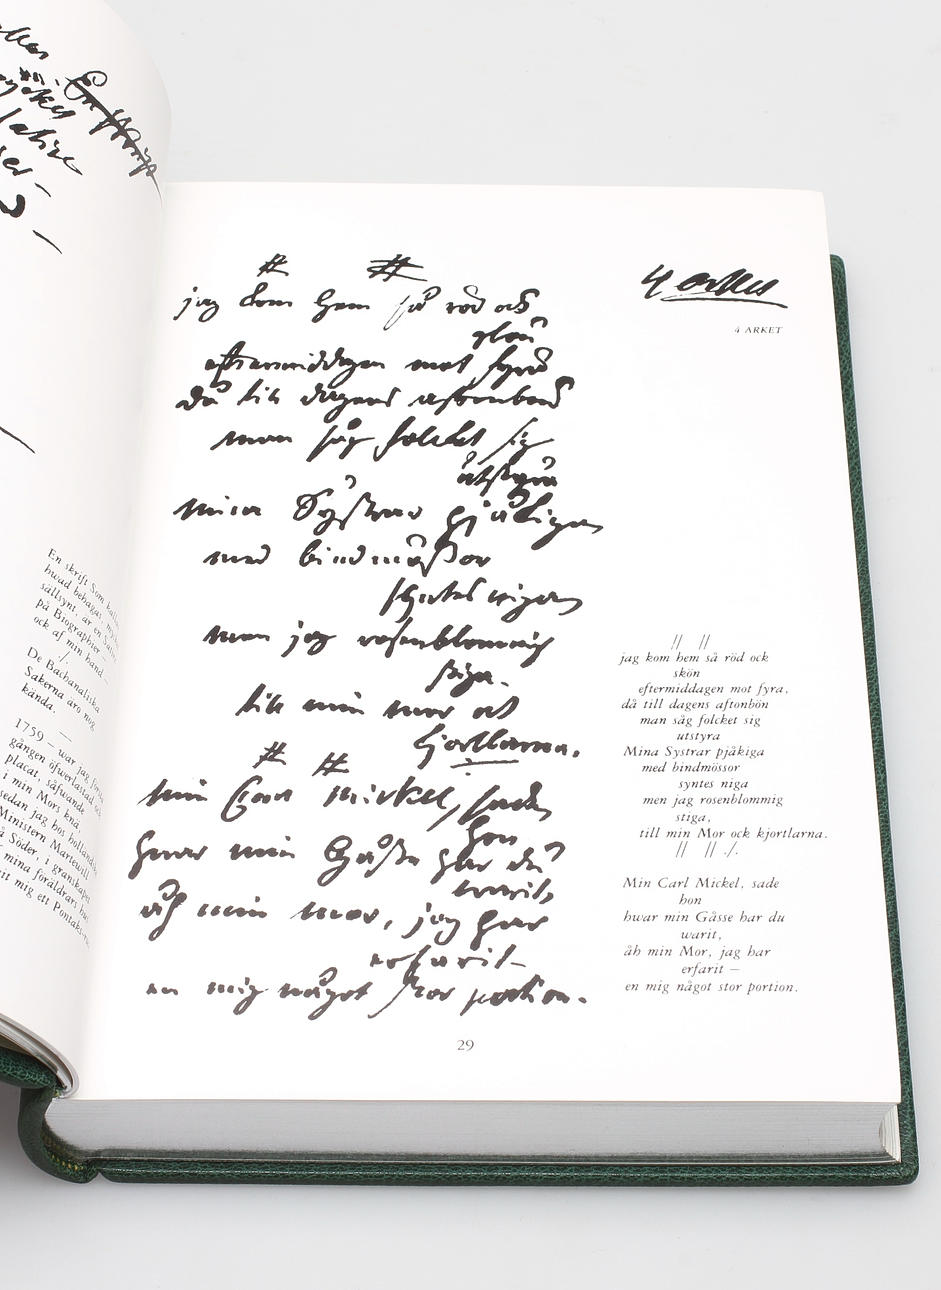 En skrift Som kall
hwad behagas, my
sällsynt, är en
på Biographier –
ock af min hand –
./.
De Bachanaliska
Sakerna äro nog
kända.
—
1759 – war jag
gången öfwerlastad
placat, såfwande
i min Mors knä,
sedan jag hos holländs
Ministern Martewill
å Söder, i granskapet
mina föräldrar
mig ett Pontaks
4 arket
4 ARKET
# #
jag kom hem så röd ock
skön
eftermiddagen mot fyra
då till dagens aftonbön
man såg folcket sig
utstyra
Mina Systrar pjåkiga
med bindmössor
syntes niga
men jag rosenblommig
stiga.
till min mor ock
kjortlarna.
# #
Min Carl Mickel, sade
hon
hwar min Gåsse har du
warit,
åh min mor, jag har
erfarit –
en mig något stor portion.
// //
jag kom hem så röd ock
skön
eftermiddagen mot fyra,
då till dagens aftonbön
man såg folcket sig
utstyra
Mina Systrar pjåkiga
med bindmössor
syntes niga
men jag rosenblommig
stiga,
till min Mor ock kjortlarna.
// // ./.
Min Carl Mickel, sade
hon
hwar min Gåsse har du
warit,
åh min Mor, jag har
erfarit –
en mig något stor portion.
29